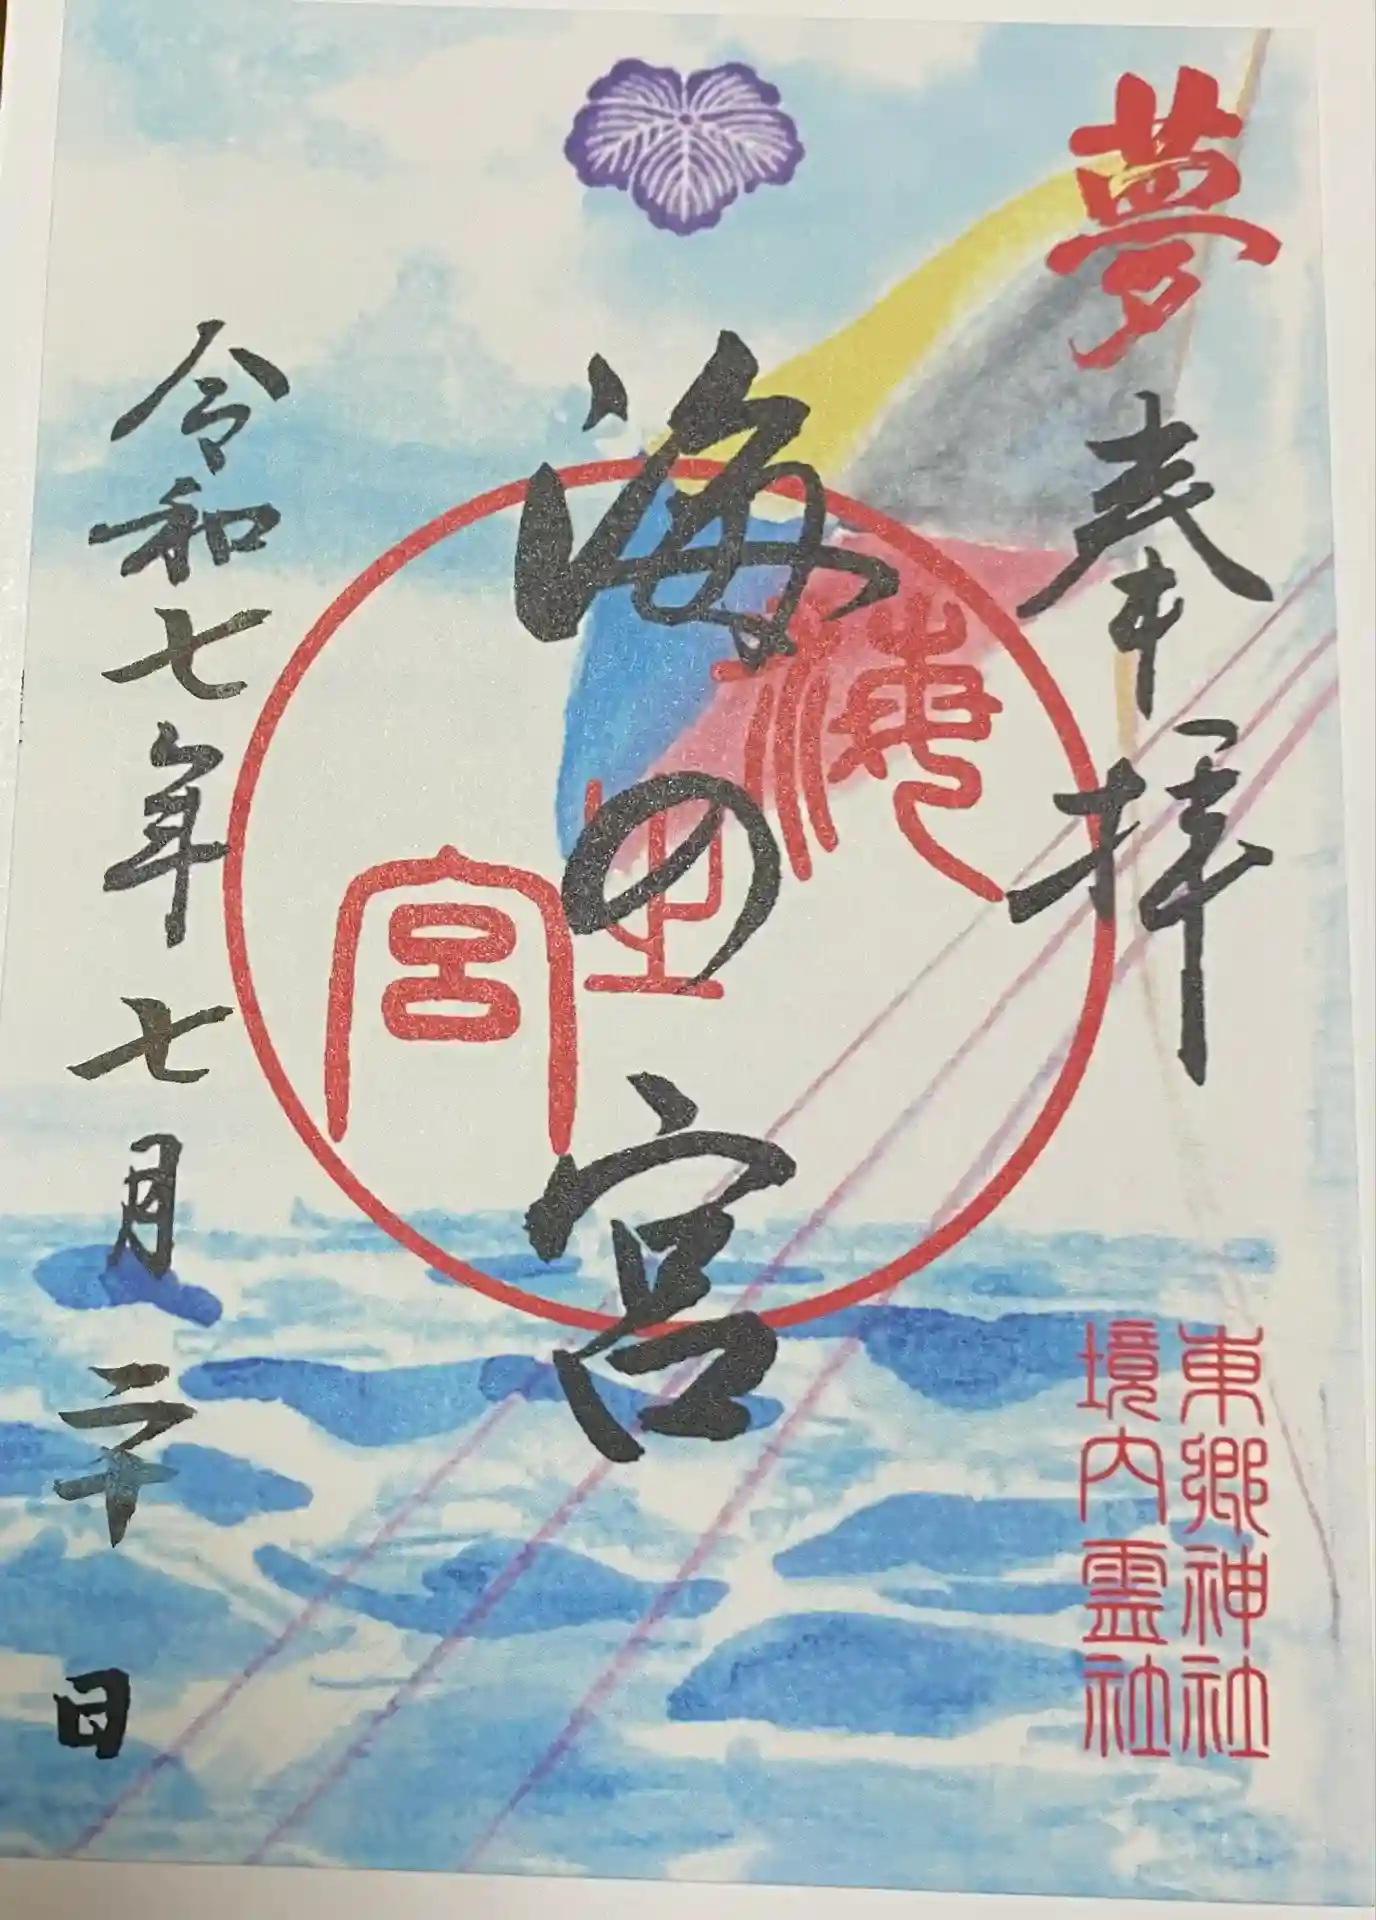 夢
奉拝
東郷神社
境内霊社
海の宮
海之宮
令和七年七月二十日